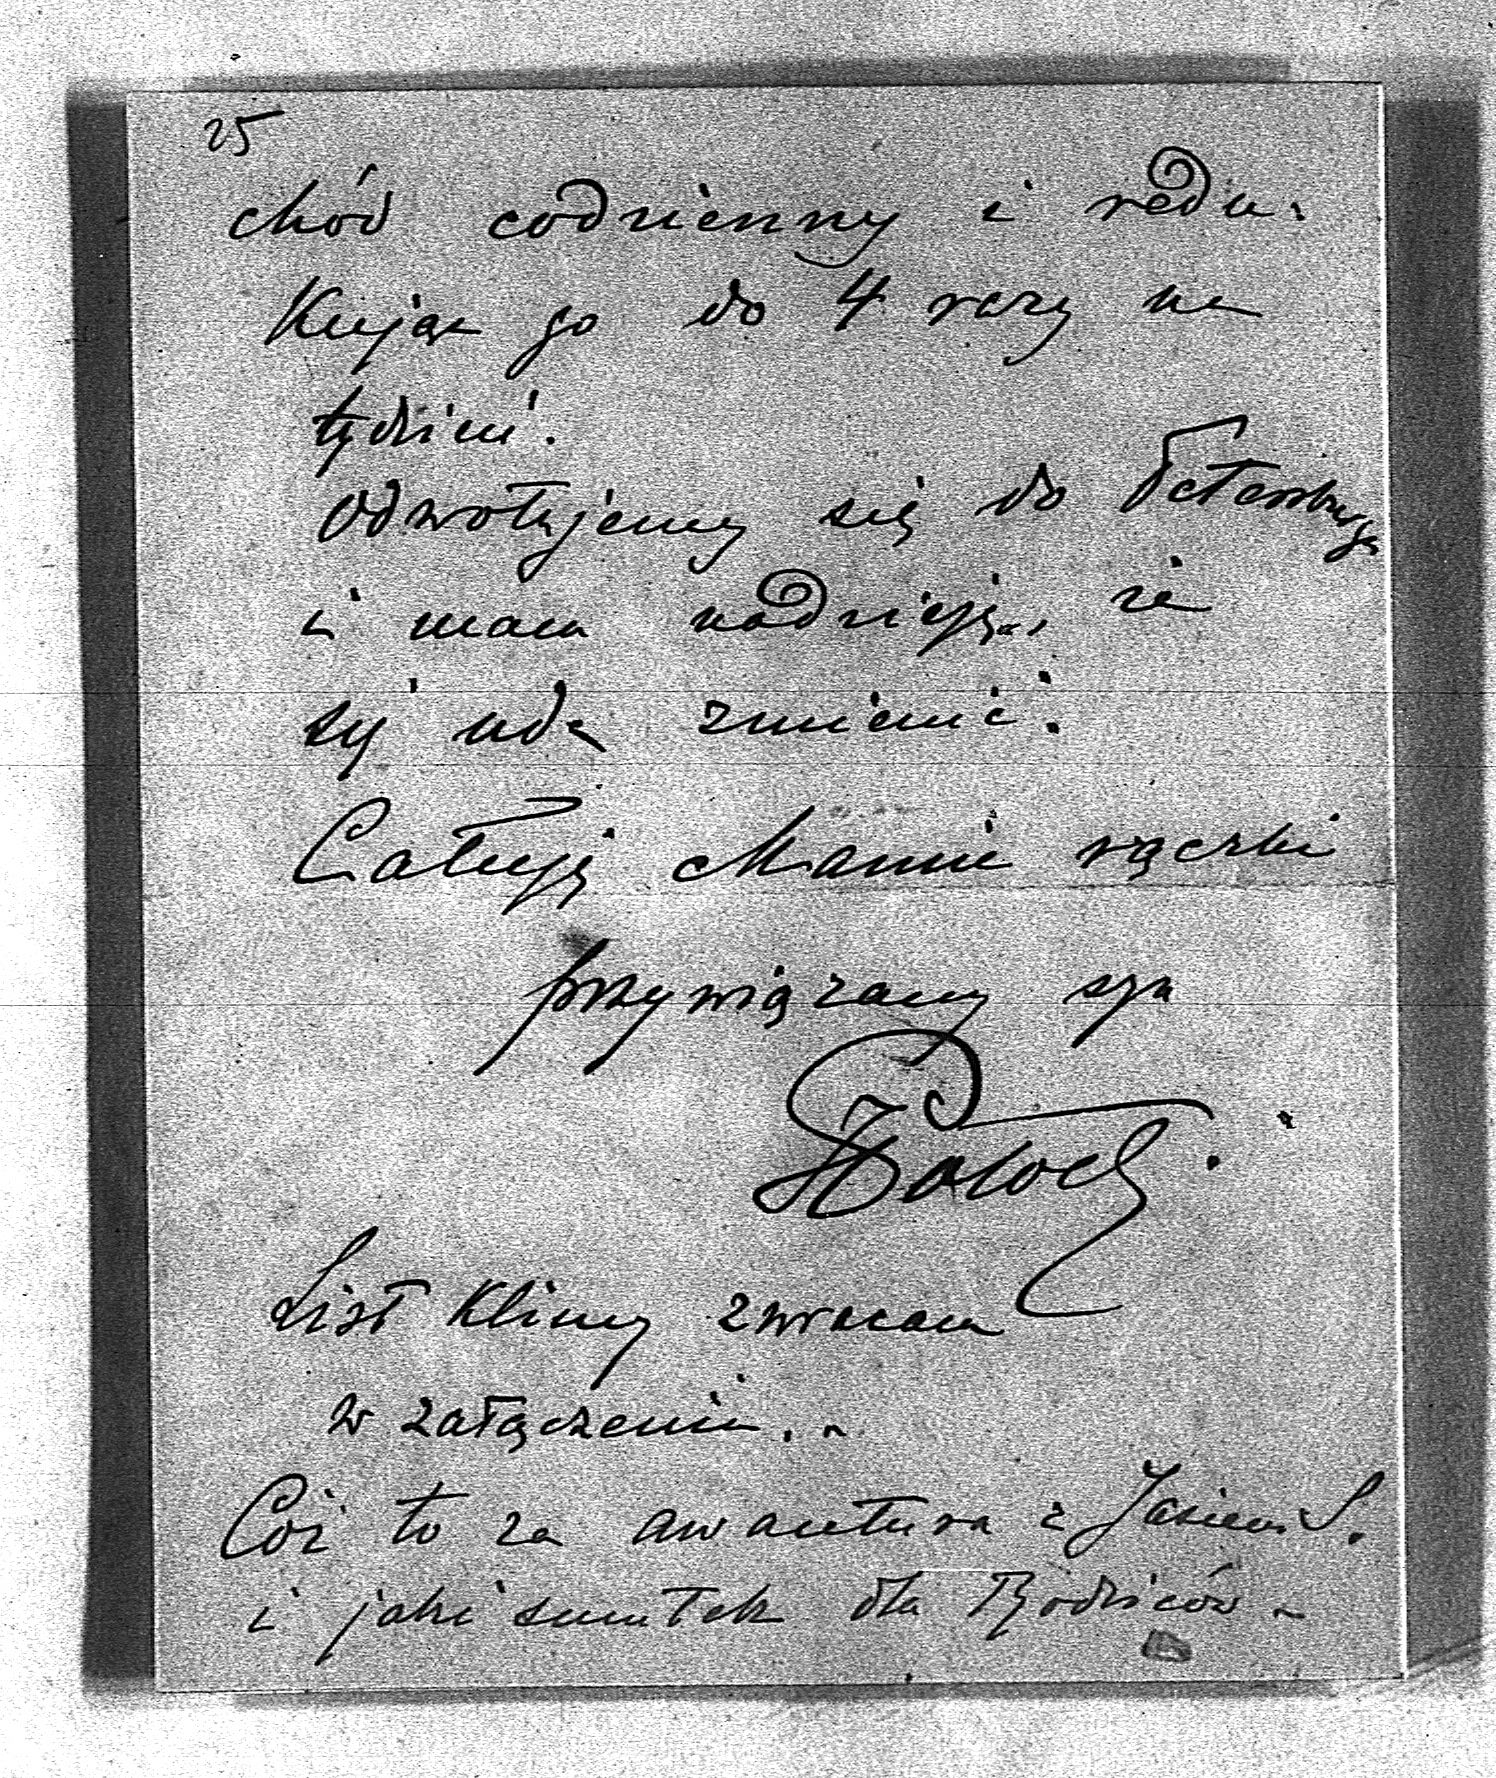 25
chód codzienny i redu-
kując go do 4 razy na
tydzień.
Odwołujemy się do Petersburga
i mam nadzieję, że
się uda zmienić.
Całuję Mamie rączki
przywiązany syn
Potocki.
List Klimy zwracam
w załączeniu. -
Cóż to za awantura z Jasiem S.
i jaki smutek dla Rodziców -